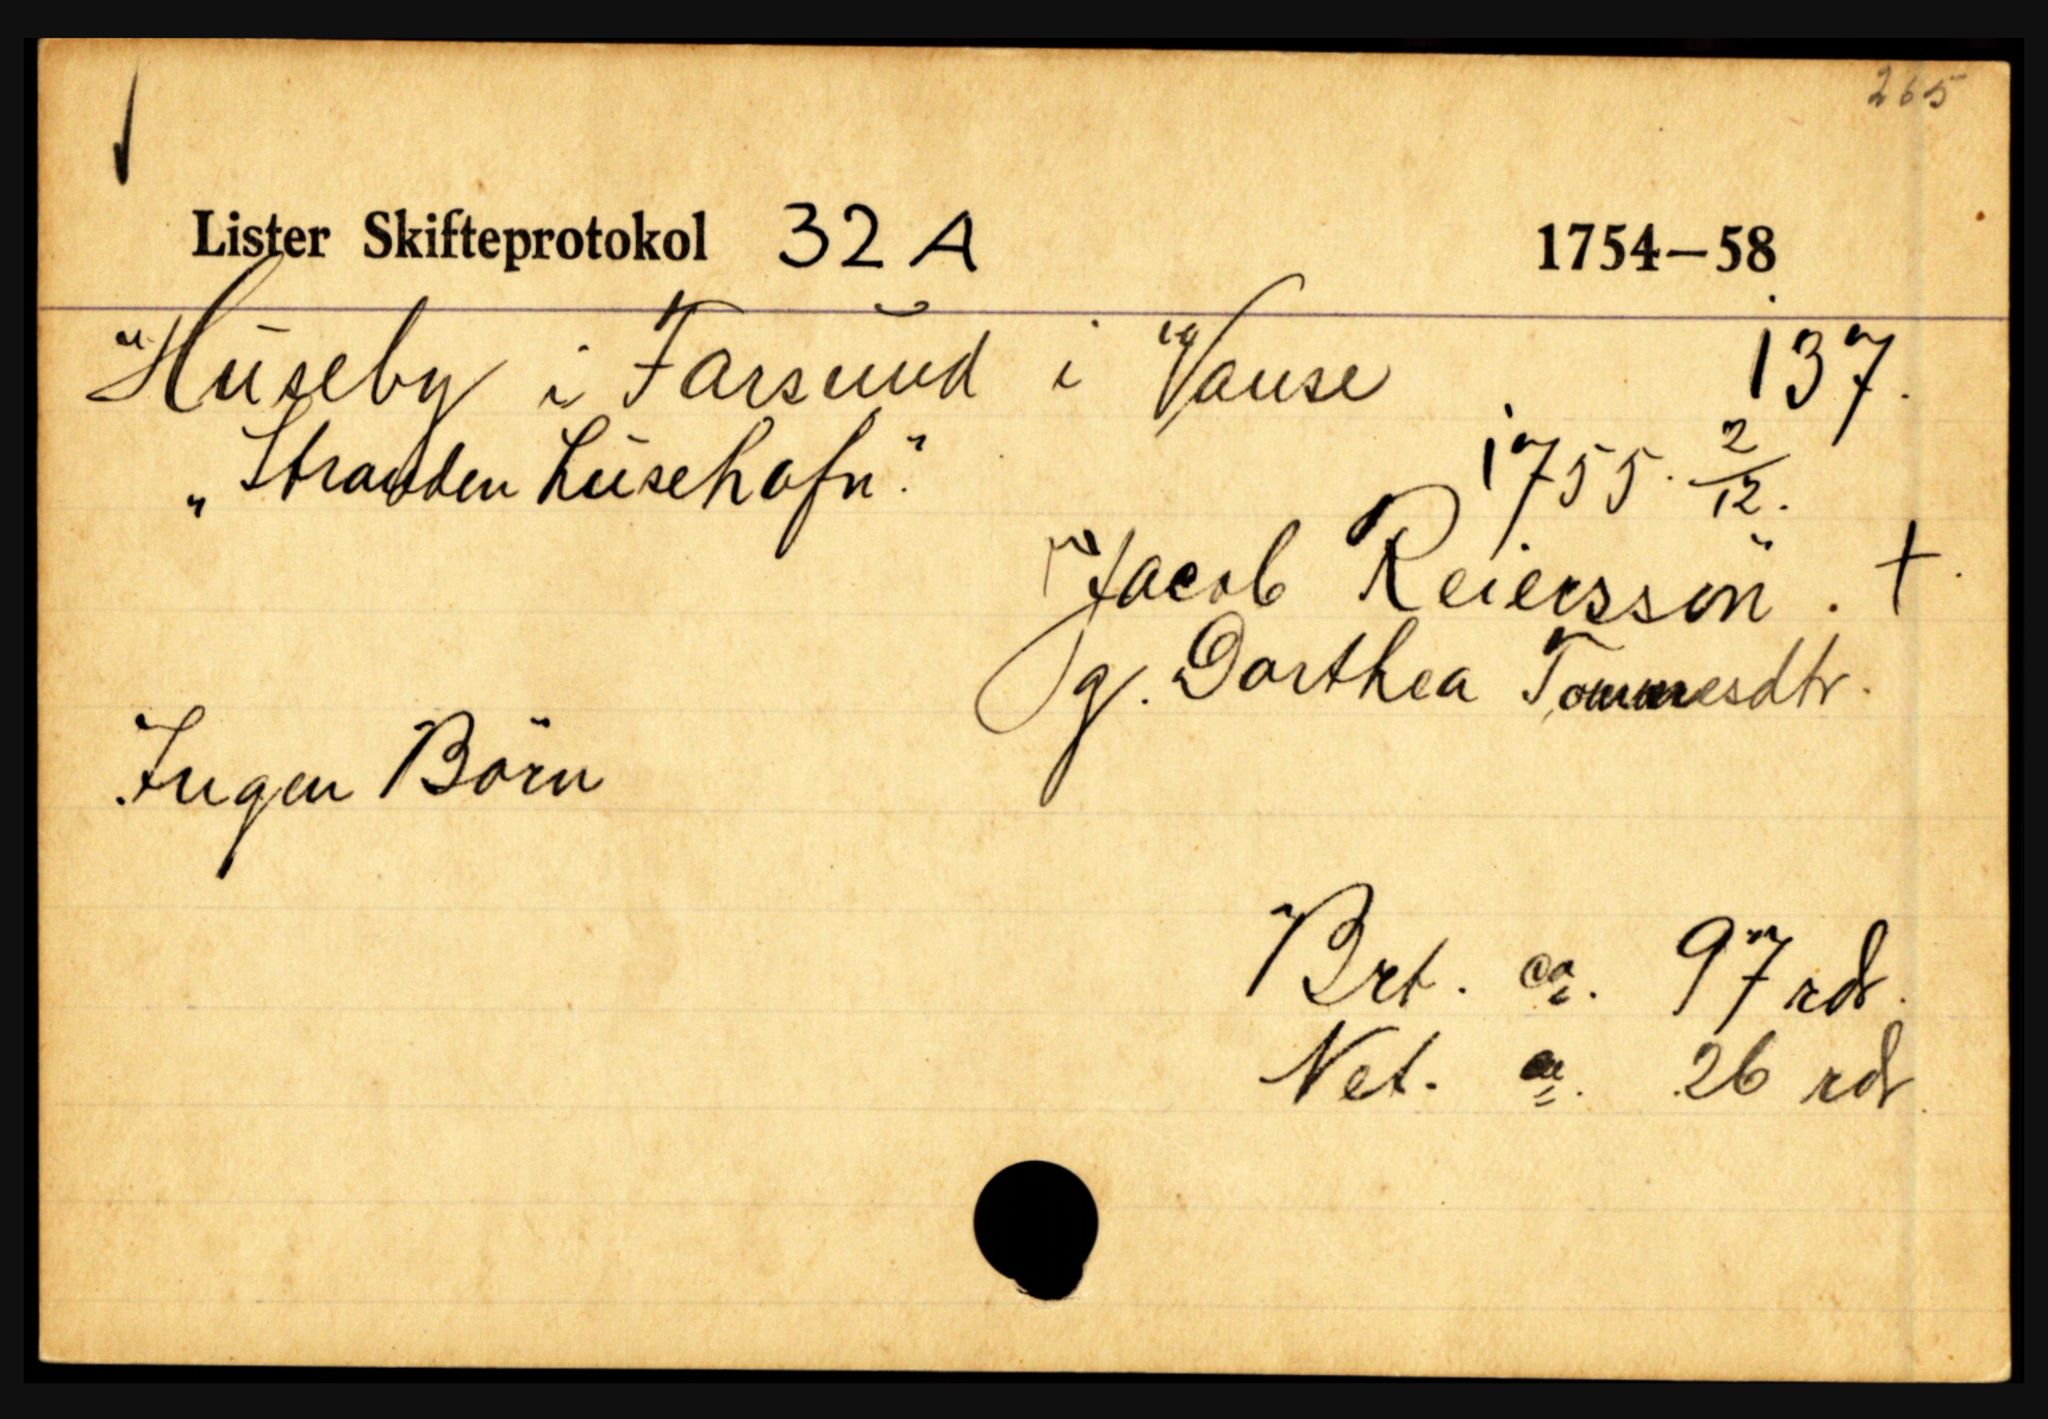 265
Lister Skifteprotokol 32 A 1754–58
Huseby i Farsund i Vanse 137.
„Stranden Lusehafn". 1755. 2/12.
Jacob Reiersson . †
g. Dorthea Tommesdtr.
Ingen Börn
Brt. ca. 97 rdr.
Net. ca. 26 rdr.